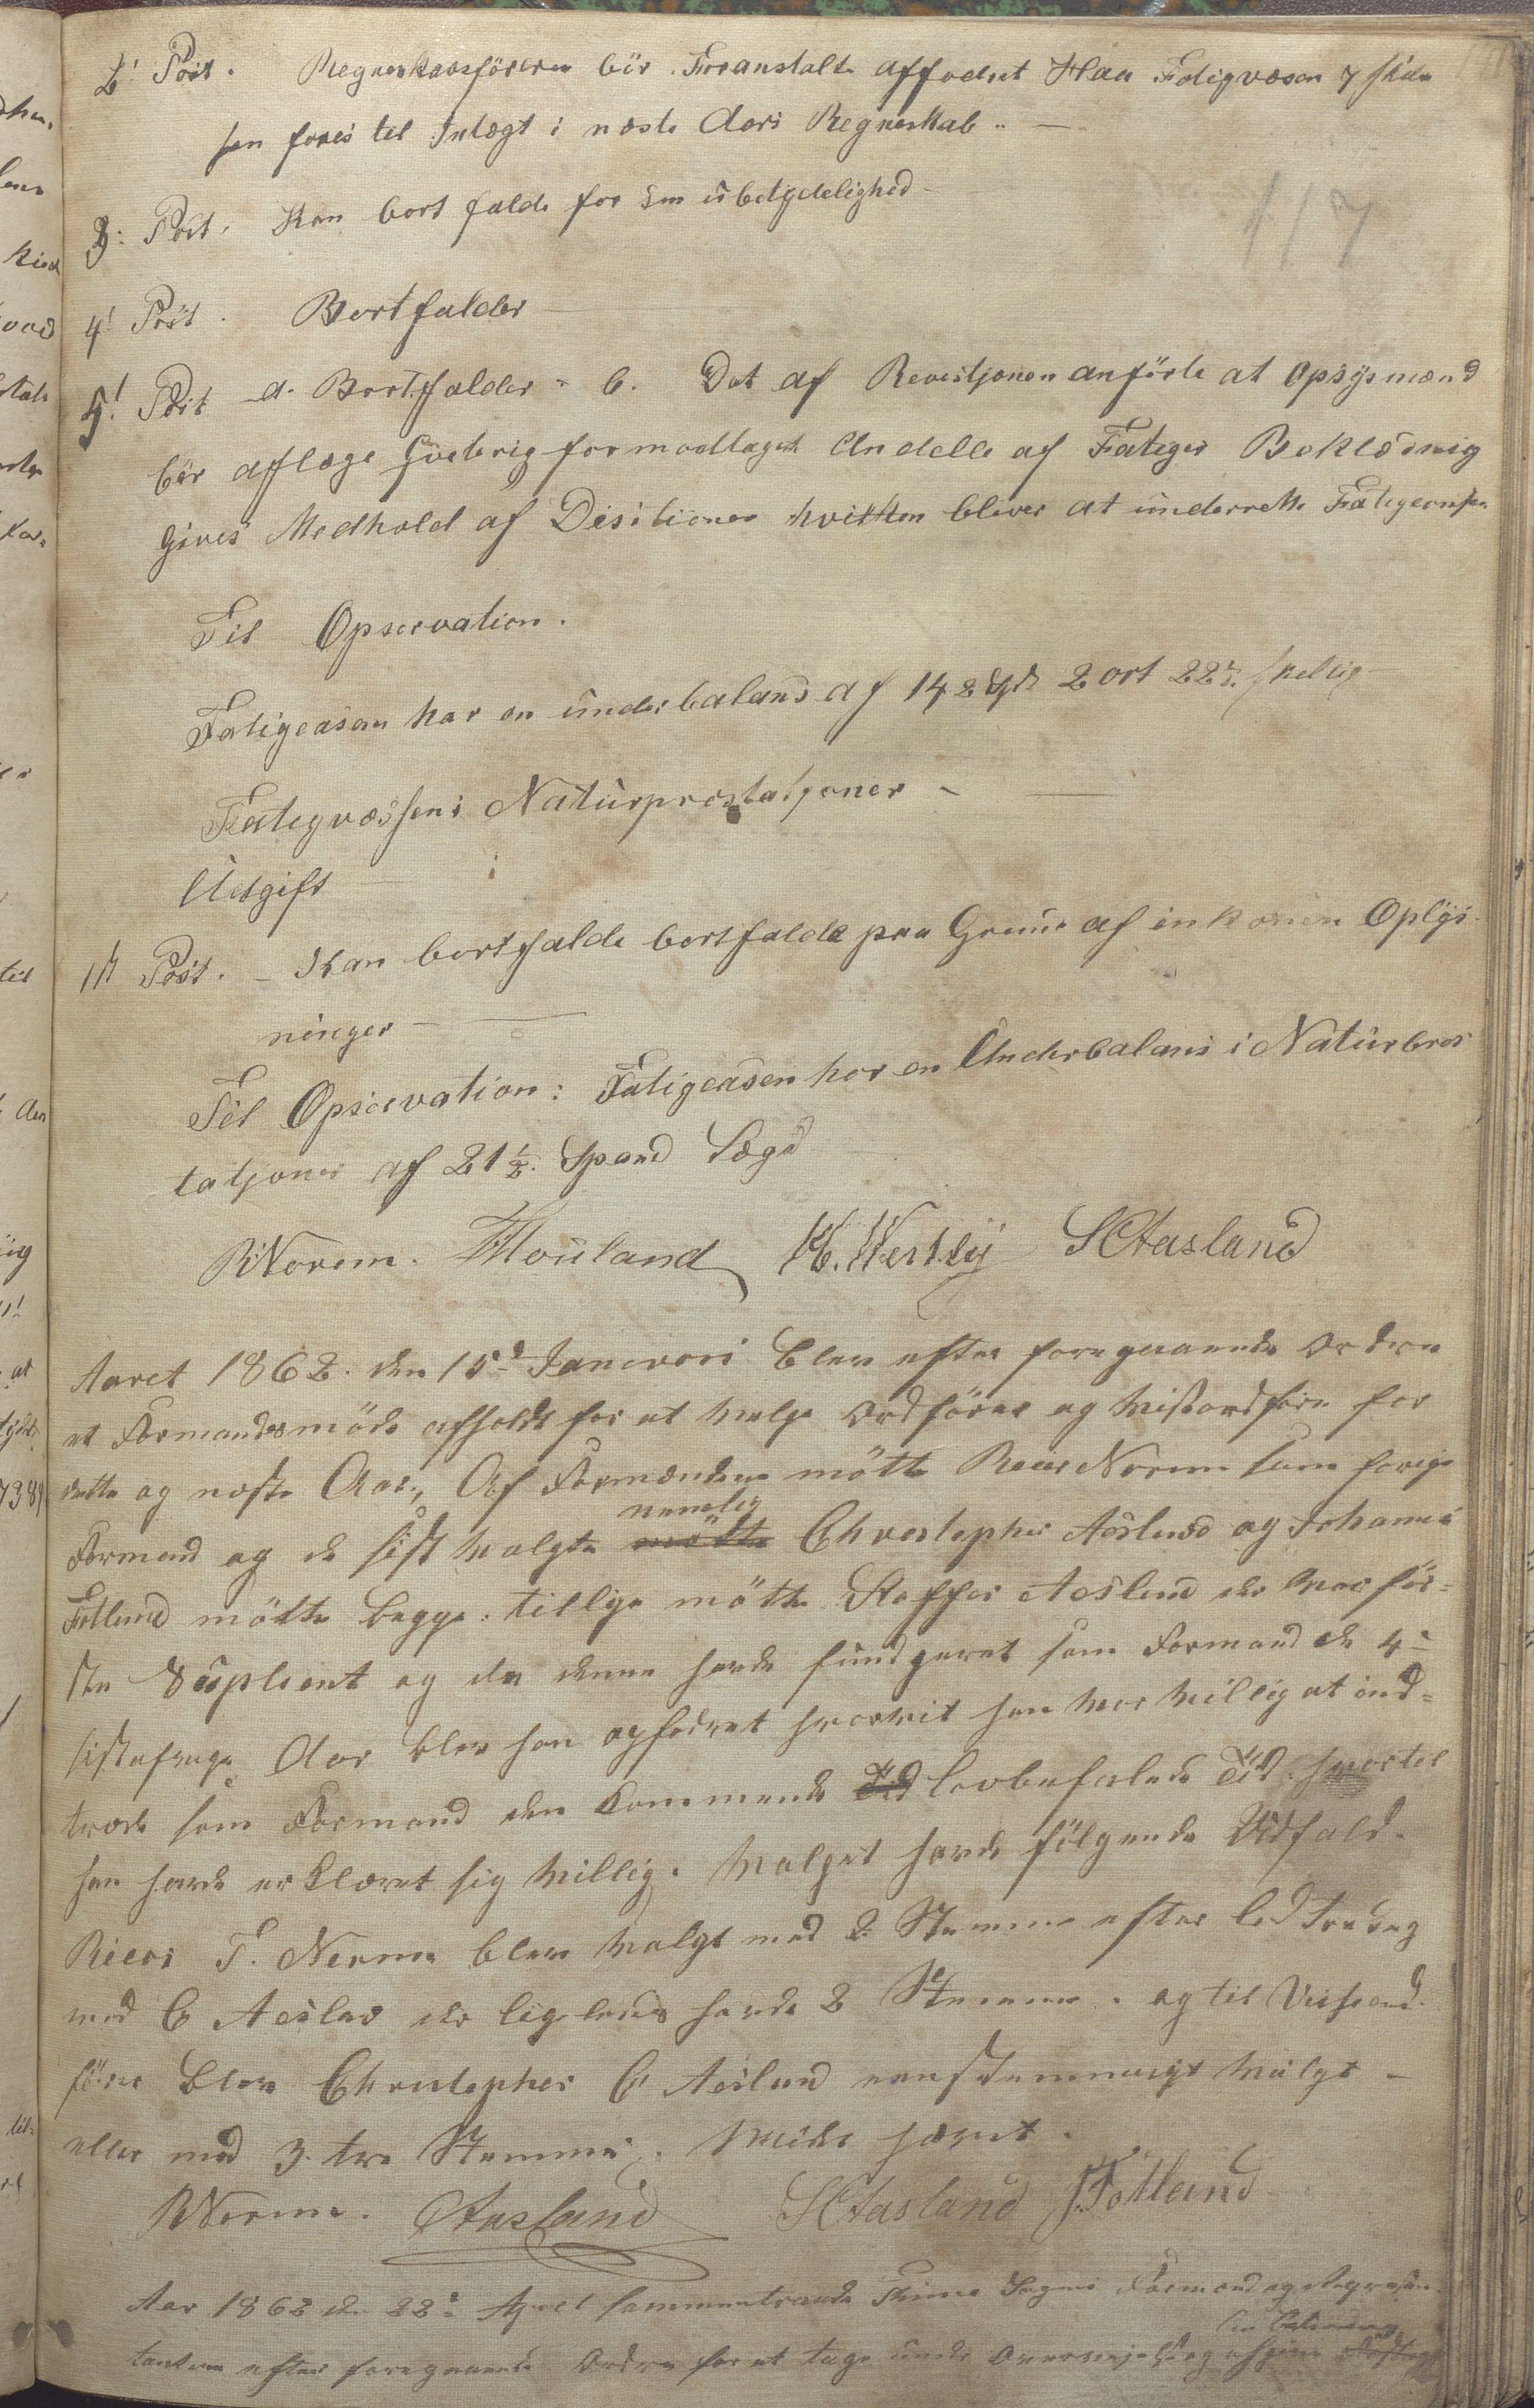 2! Post. Regneskabsföreren bör Foranstalte affodret Haa Fatigvæsen 7 ſkil
ſen fores til Intægt i næste Aars Regneskab ..
117
3: Post. Kan bort falde for sin übetydelighed
4! Post. Bortfalder
5! Post a. Bortfalder - b. Det af Revistjonen anförte at Opsÿsmænd
bör aflæge for modtaget Andelle af Fatiges Beklædning
gives Medhold af Desitionen hvilken bliver at ünderrette
Til Opservation.
Fatigcasen har en ünderbalans af 148 Spd 2 ort 22½ ſkellig
Fategvæsſens Natürprestatjoner -
Udgift
1st Post. - Kan bortfalde bortfalde paa Grund af inkomen Oplÿs
ninger
Til Opservation: Fatigcasen har en Underbalans i Natürbres
tatjoner af 21½ Spand Sæqd
RNorem. THouland K. Werslÿ SCAasland
Aaret 1862. den 15d Janevari blev efter foregaaende Ordre
et Formandsmöde afholdt for at velge Ordförer og Viseordförer for
dette og næste Aar., Af Formendene mötte Reier Norem som forige
Formand og de sist valgte mötte nemlig Christopher Aaslund og Johannes
Fotland mötte begge. tillige mötte Staffer Aaslund der var för=
ste Süplient og da denne havde fündgeret som Formand de 4
sistafvigte Aar blev han opfodret hvorvit han var villig at ind=
træde som Formand den kommende Tid lovbefalede Tid. hvortil
han havde erklæret sig villig. Valget havde fölgende Udfald.
Reier T. Norem blev valgt med 2 Stemmer efter lodtræding
med C Aaslad der ligeledes havde 2 Stemmer. og til Viseord
förer blev Christopher C Aaslund eenstemmigt valgt -
eller med 3. tre Stemmer. Möde hævet.
RNorem. CAasland SCAasland J. Fotland
Aar 1862 den 22d April sammentraade Thime Sogns Formænd og Repræsen
tanterne efter foregaaende Ordre for at tage ünder Overveielse og